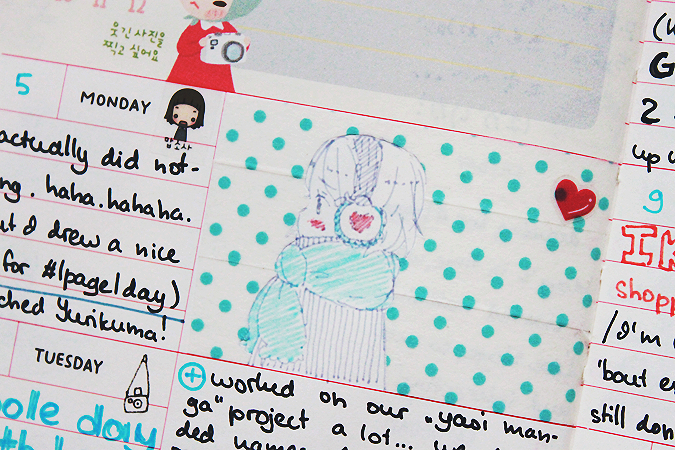 11 12
웃긴 사진을
찍고 싶어요
5 MONDAY
맙소사
actually did not-
ng. haha. hahaha.
ut I drew a nice
for #1page1day)
ched Yurikuma!
TUESDAY
ole day
+ worked on our "yaoi man-
ga" project a lot...
ded names
(
G
2
up
9
shopp
/I'm
'bout e
still don